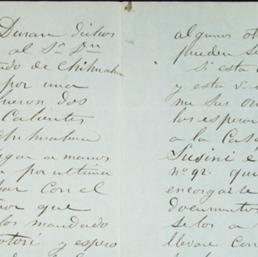 Duran dichos
al Sr. Dn
ado de Chihuahua
por una
fueron dos
Calientes
Chihuahua
egar a manos
por ultima
ar con el
tor que
los mandado
y espero
algunos ot
pueden se
si esta
y esta si
me sus or
los espero
a la Casa
Susini e
nº 92. que
encargarle
documentos
selos a
llevare con